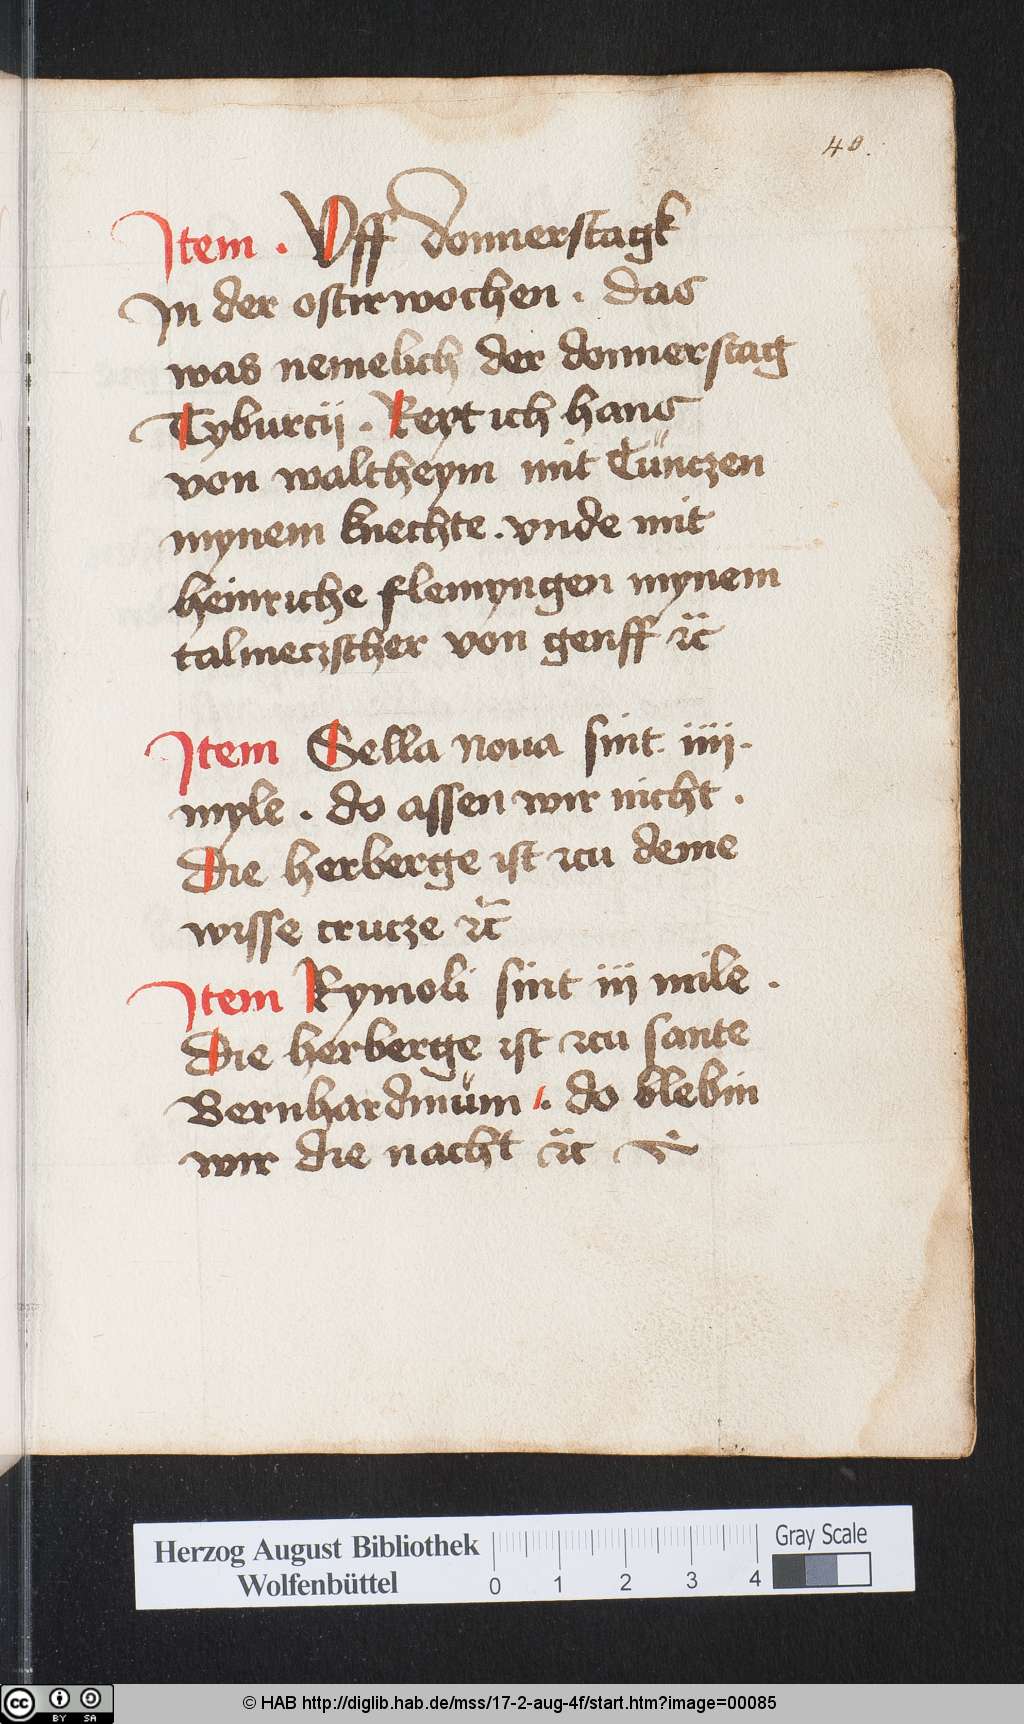 40.
Item . Vff donnerstagk
In der ostirwochen . das
was nemelich der donnerstag
Tyburcii . Reyt ich hans
von waltheym mit Cünczen
mynem knechte . vnde mit
heinriche flemyngen mynem
talmeczscher von genff ꝛc̈
Item Sella noua sint . iiii .
myle . do assen wir nicht .
Die herberge ist zcu deme
wisse crucze ꝛc
Item Rymoli sint iii mile .
Die herberge ist zcu sante
Bernhardinüm . do blebin
wir die nacht ꝛc̈
Herzog August Bibliothek
Wolfenbüttel
0 1 2 3 4
Gray Scale
cc BY SA
© HAB http://diglib.hab.de/mss/17-2-aug-4f/start.htm?image=00085